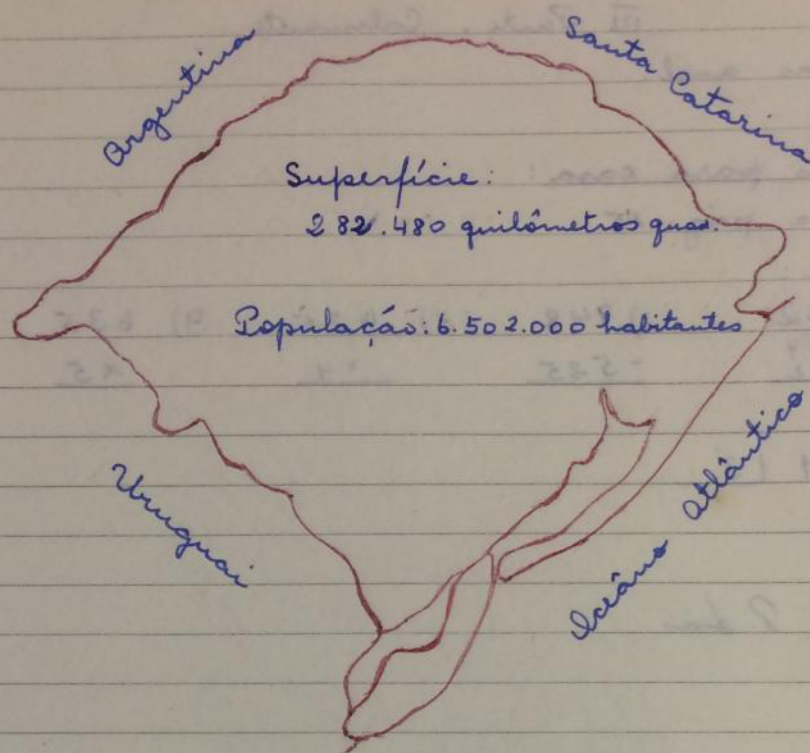 Argentina
Santa Catarina
Superfície:
282.480 quilômetros quad.
População: 6.502.000 habitantes
Uruguai
Oceâno Atlântico